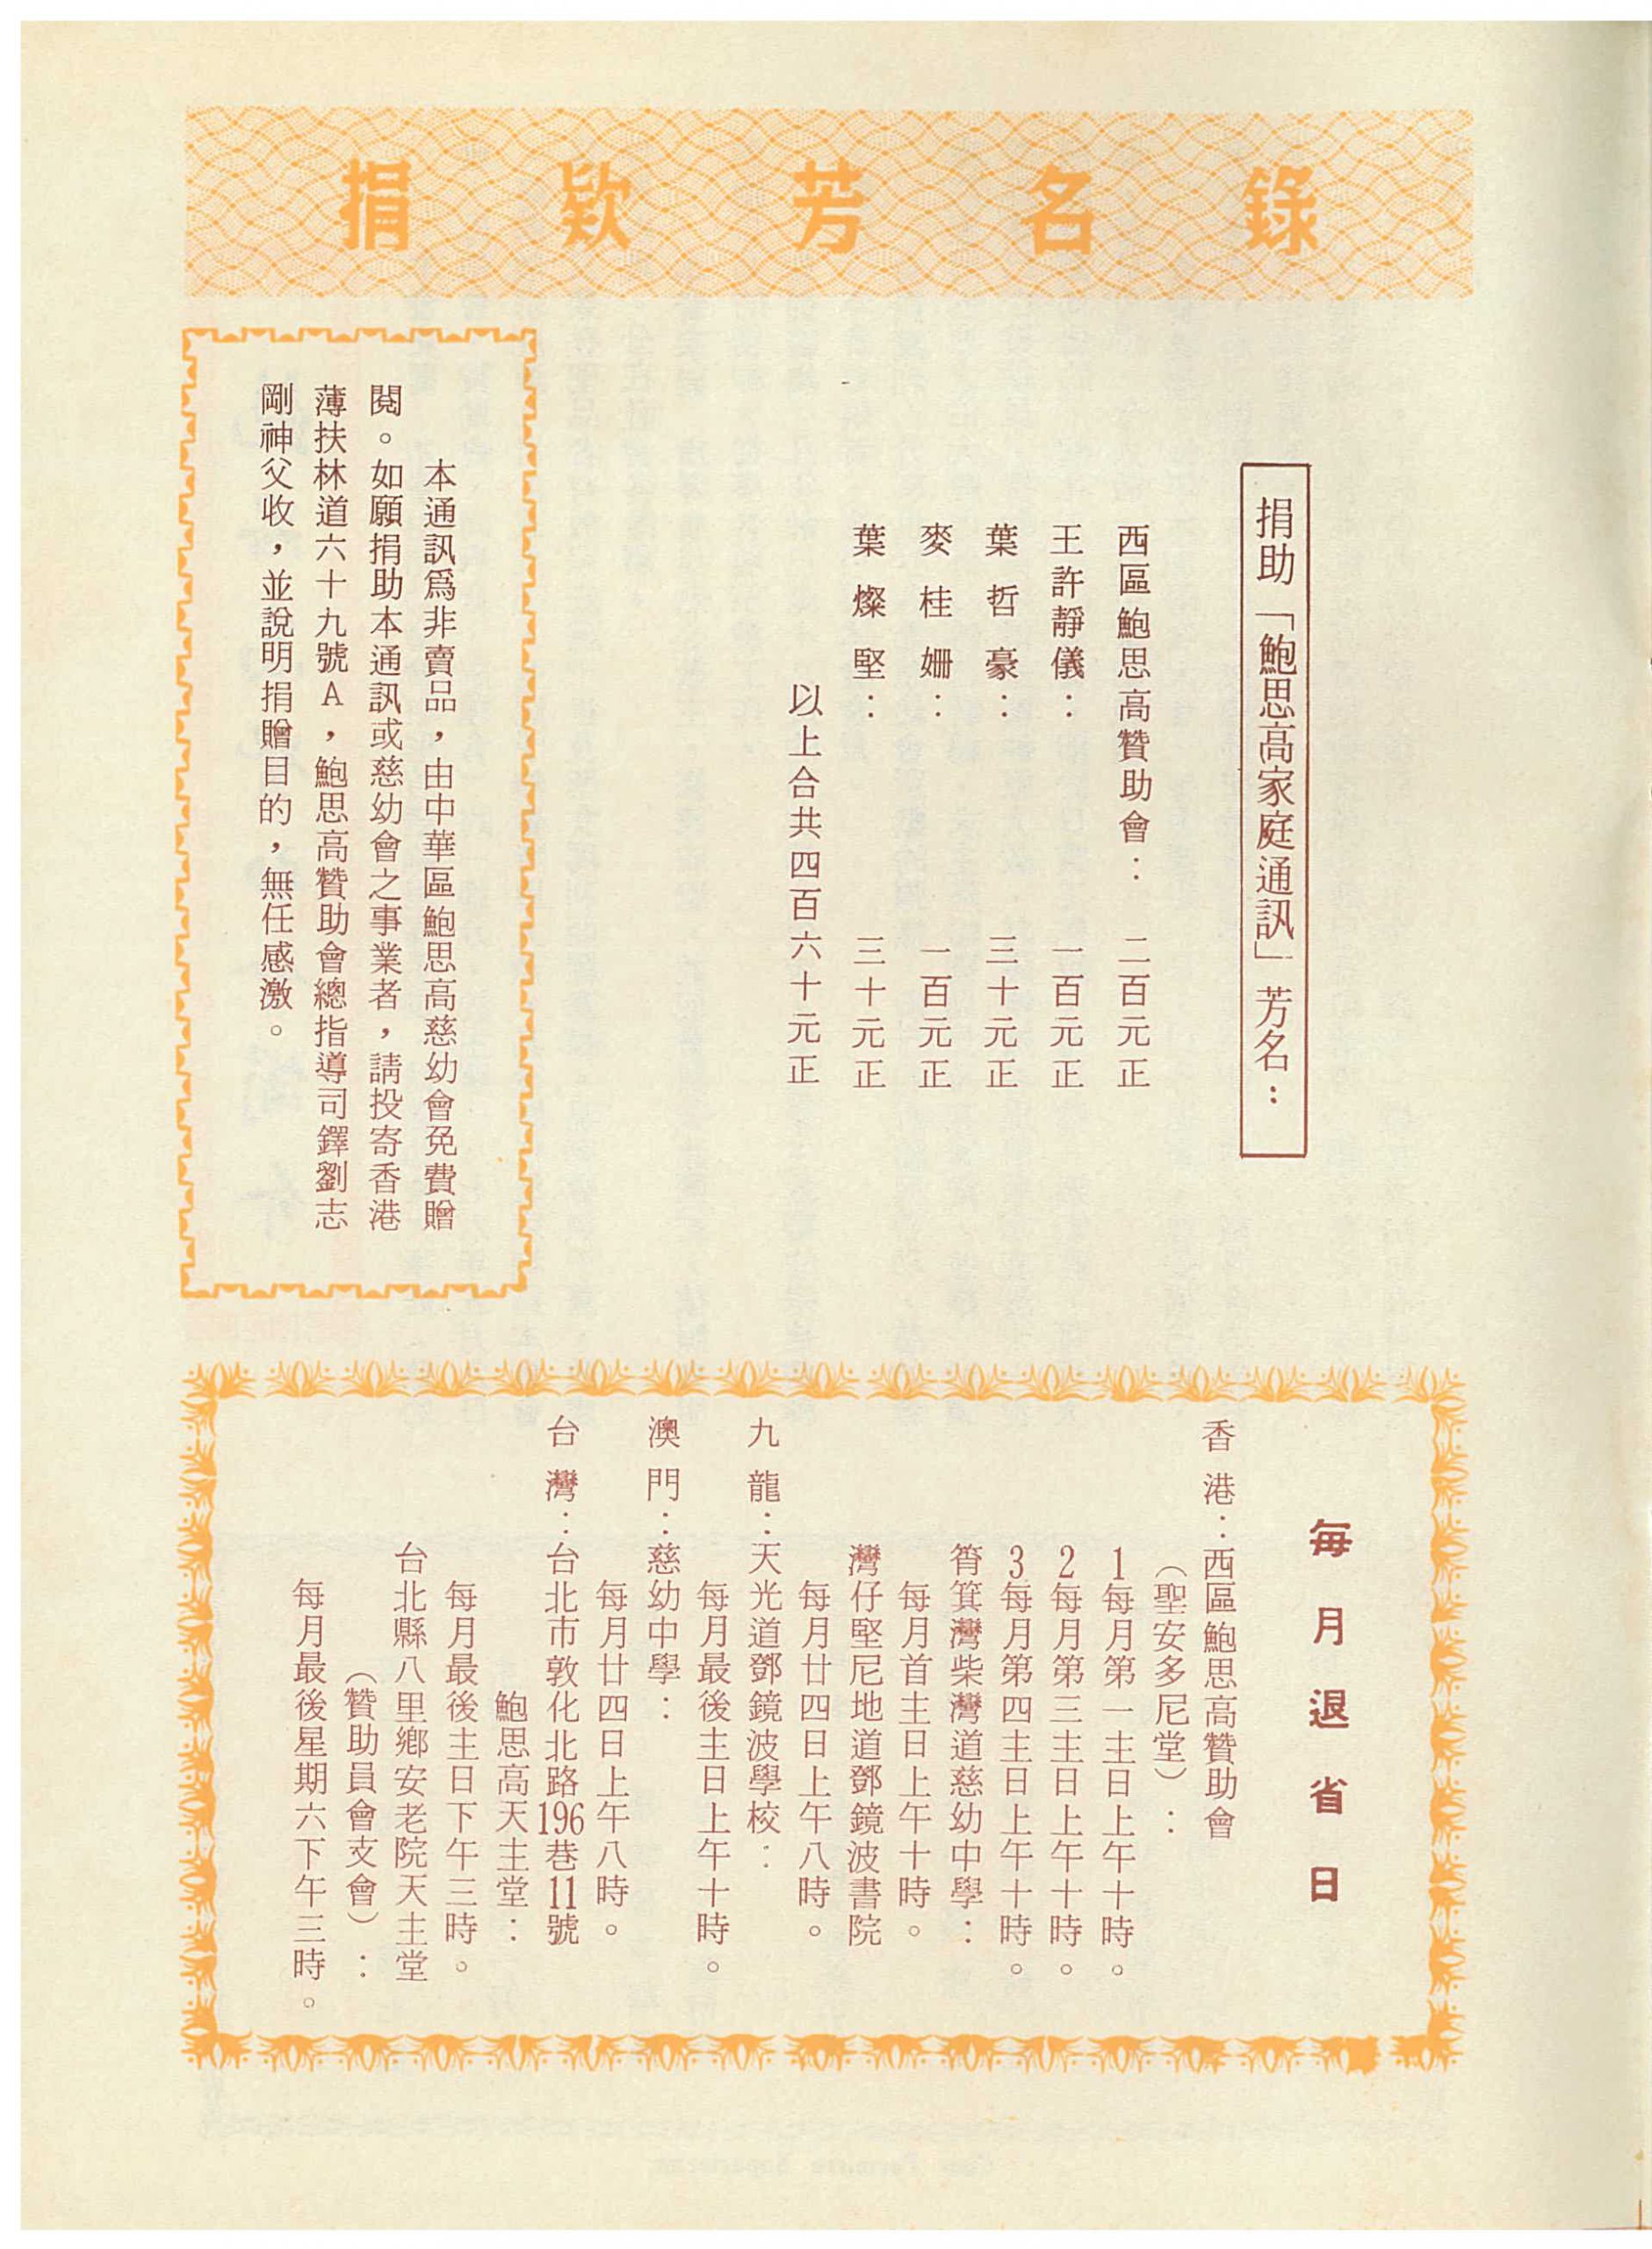 捐欵芳名錄
捐助「鮑思高家庭通訊」芳名：
西區鮑思高贊助會：二百元正
王許靜儀：一百元正
葉哲豪：三十元正
麥桂姍：一百元正
葉燦堅：三十元正
以上合共四百六十元正
本通訊爲非賣品，由中華區鮑思高慈幼會免費贈
閱。如願捐助本通訊或慈幼會之事業者，請投寄香港
薄扶林道六十九號A，鮑思高贊助會總指導司鐸劉志
剛神父收，並說明捐贈目的，無任感激。
每月退省日
香港：西區鮑思高贊助會
（聖安多尼堂）：
1每月第一主日上午十時。
2每月第三主日上午十時。
3每月第四主日上午十時。
筲箕灣柴灣道慈幼中學：
每月首主日上午十時。
灣仔堅尼地道鄧鏡波書院
每月廿四日上午八時。
九龍：天光道鄧鏡波學校：
每月最後主日上午十時。
澳門：慈幼中學：
每月廿四日上午八時。
台灣：台北市敦化北路196巷11號
鮑思高天主堂：
每月最後主日下午三時。
台北縣八里鄉安老院天主堂
（贊助員會支會）：
每月最後星期六下午三時。